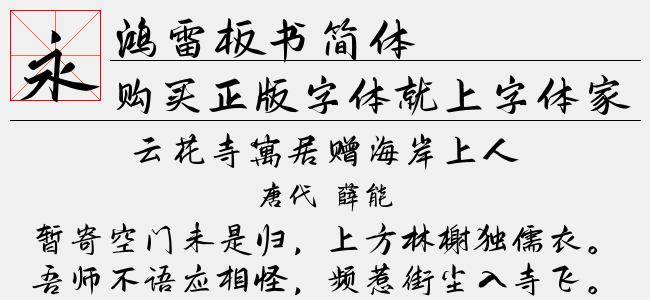 永
鸿雷板书简体
购买正版字体就上字体家
云花寺寓居赠海岸上人
唐代 薛能
暂寄空门未是归，上方林榭独儒衣。
吾师不语应相怪，频惹街尘入寺飞。